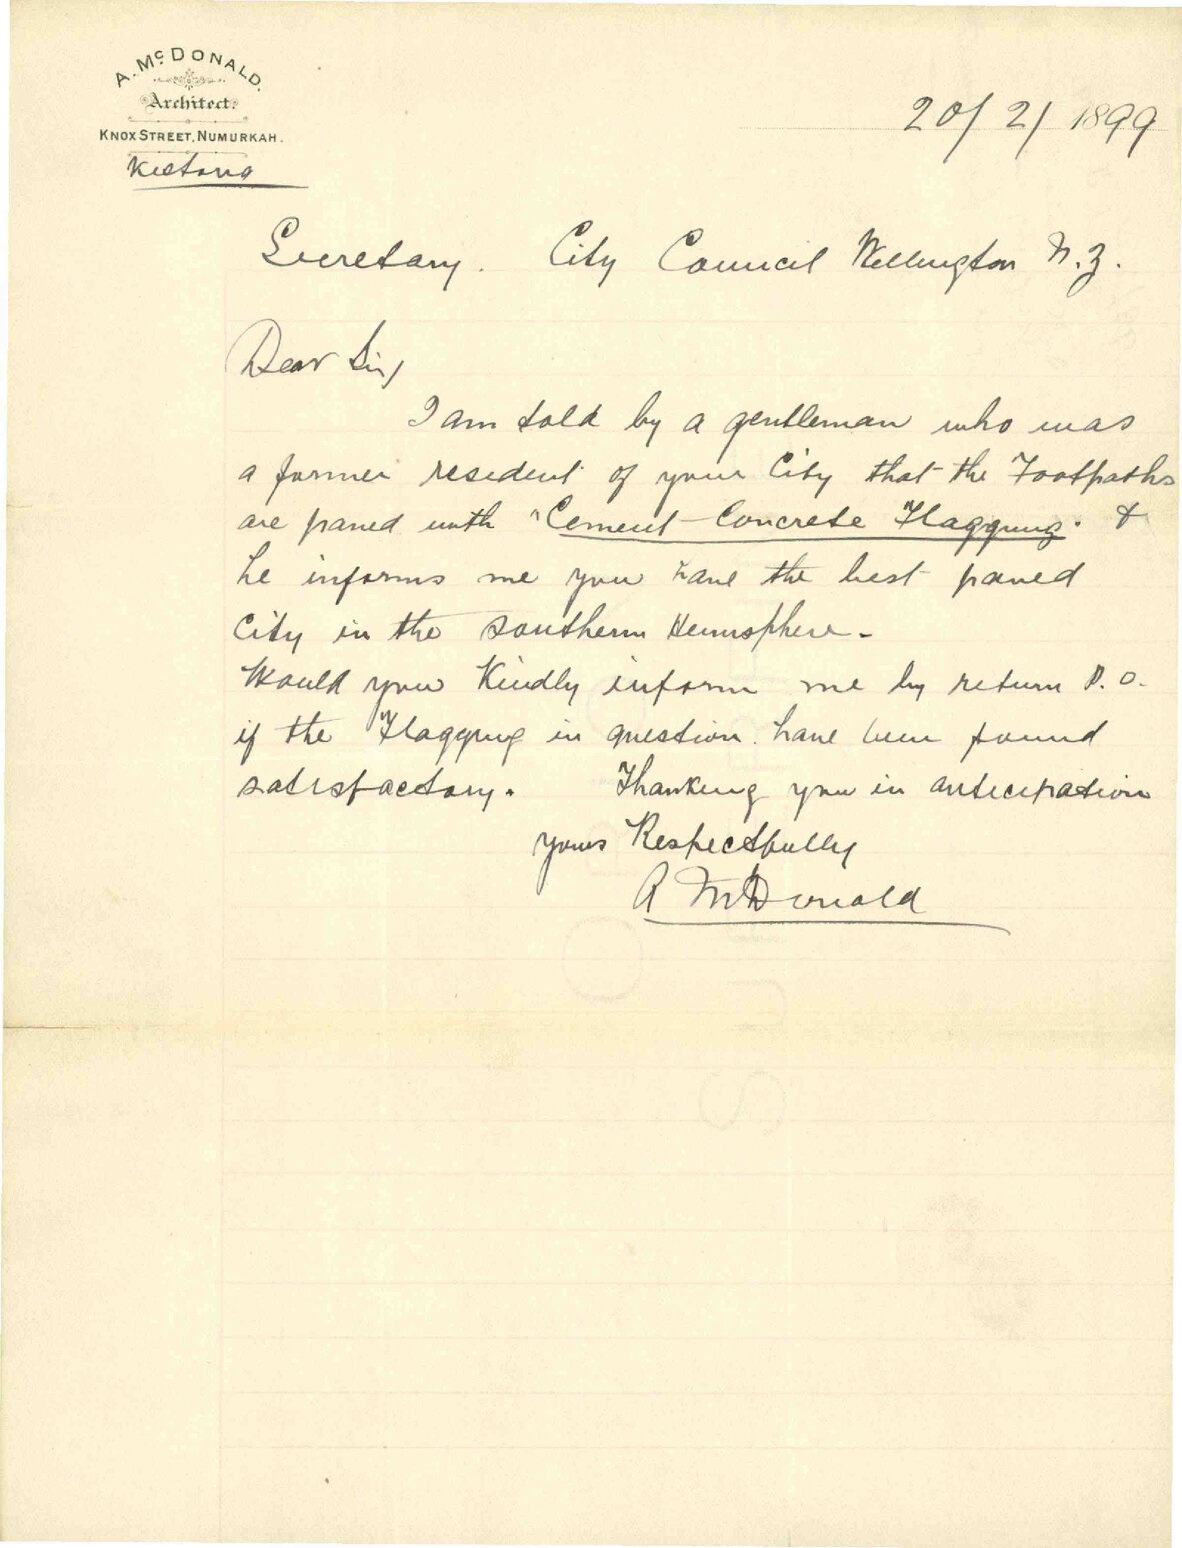 A. McDONALD.
Architect.
KNOX STREET, NUMURKAH.
Victoria
20/2/1899
Secretary. City Council Wellington N.Z.
Dear Sir/
I am told by a gentleman who was
a former resident of your City that the Footpaths
are paved with "Cement-Concrete Flagging" &
he informs me you have the best paved
City in the Southern Hemisphere-
Would you Kindly inform me by return P.O.
if the Flagging in question have been found
satisfactory. Thanking you in anticipation
yours Respectfully
A McDonald